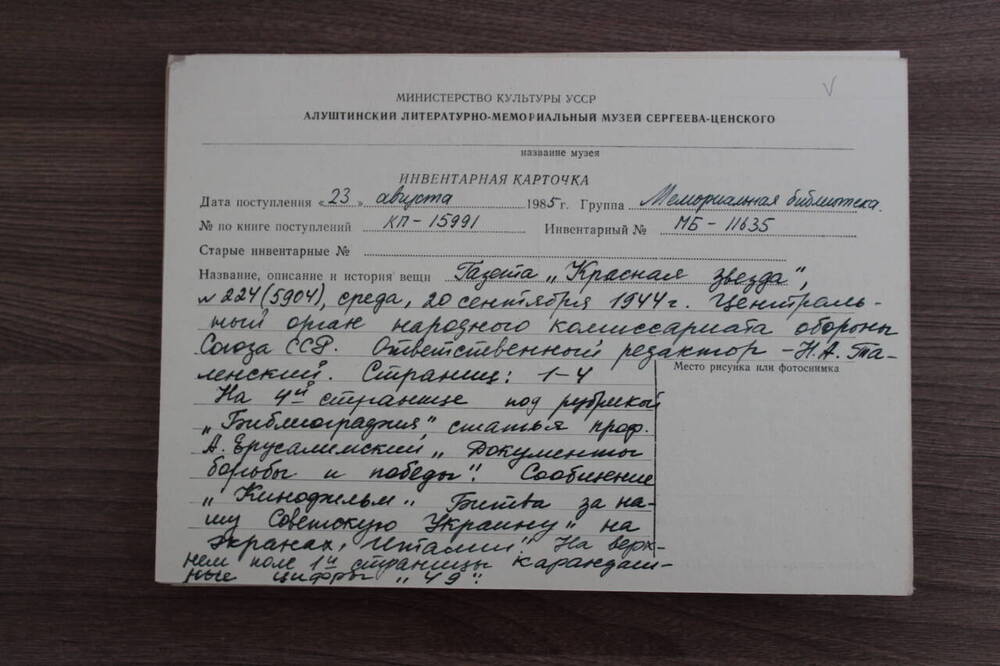 МИНИСТЕРСТВО КУЛЬТУРЫ УССР
АЛУШТИНСКИЙ ЛИТЕРАТУРНО-МЕМОРИАЛЬНЫЙ МУЗЕЙ СЕРГЕЕВА-ЦЕНСКОГО
название музея
ИНВЕНТАРНАЯ КАРТОЧКА
Дата поступления «23» августа 1985 г. Группа Мемориальная библиотека.
№ по книге поступлений КП-15991 Инвентарный № МБ-11635
Старые инвентарные №
Название, описание и история вещи Газета „Красная звезда",
№ 224 (5904), среда, 20 сентября 1944 г. Централь-
ный орган народного комиссариата обороны
Союза ССР. Ответственный редактор - Н.А. Та-
ленский. Страниц: 1-4
Место рисунка или фотоснимка
На 4й странице под рубрикой
„Библиография" статья проф.
А. Ерусалимский „Документы
борьбы и победы". Сообщение
„Кинофильм „Битва за на-
шу Советскую Украину" на
экранах Италии". На верх-
нем поле 1й страницы карандаш-
ные цифры „49".